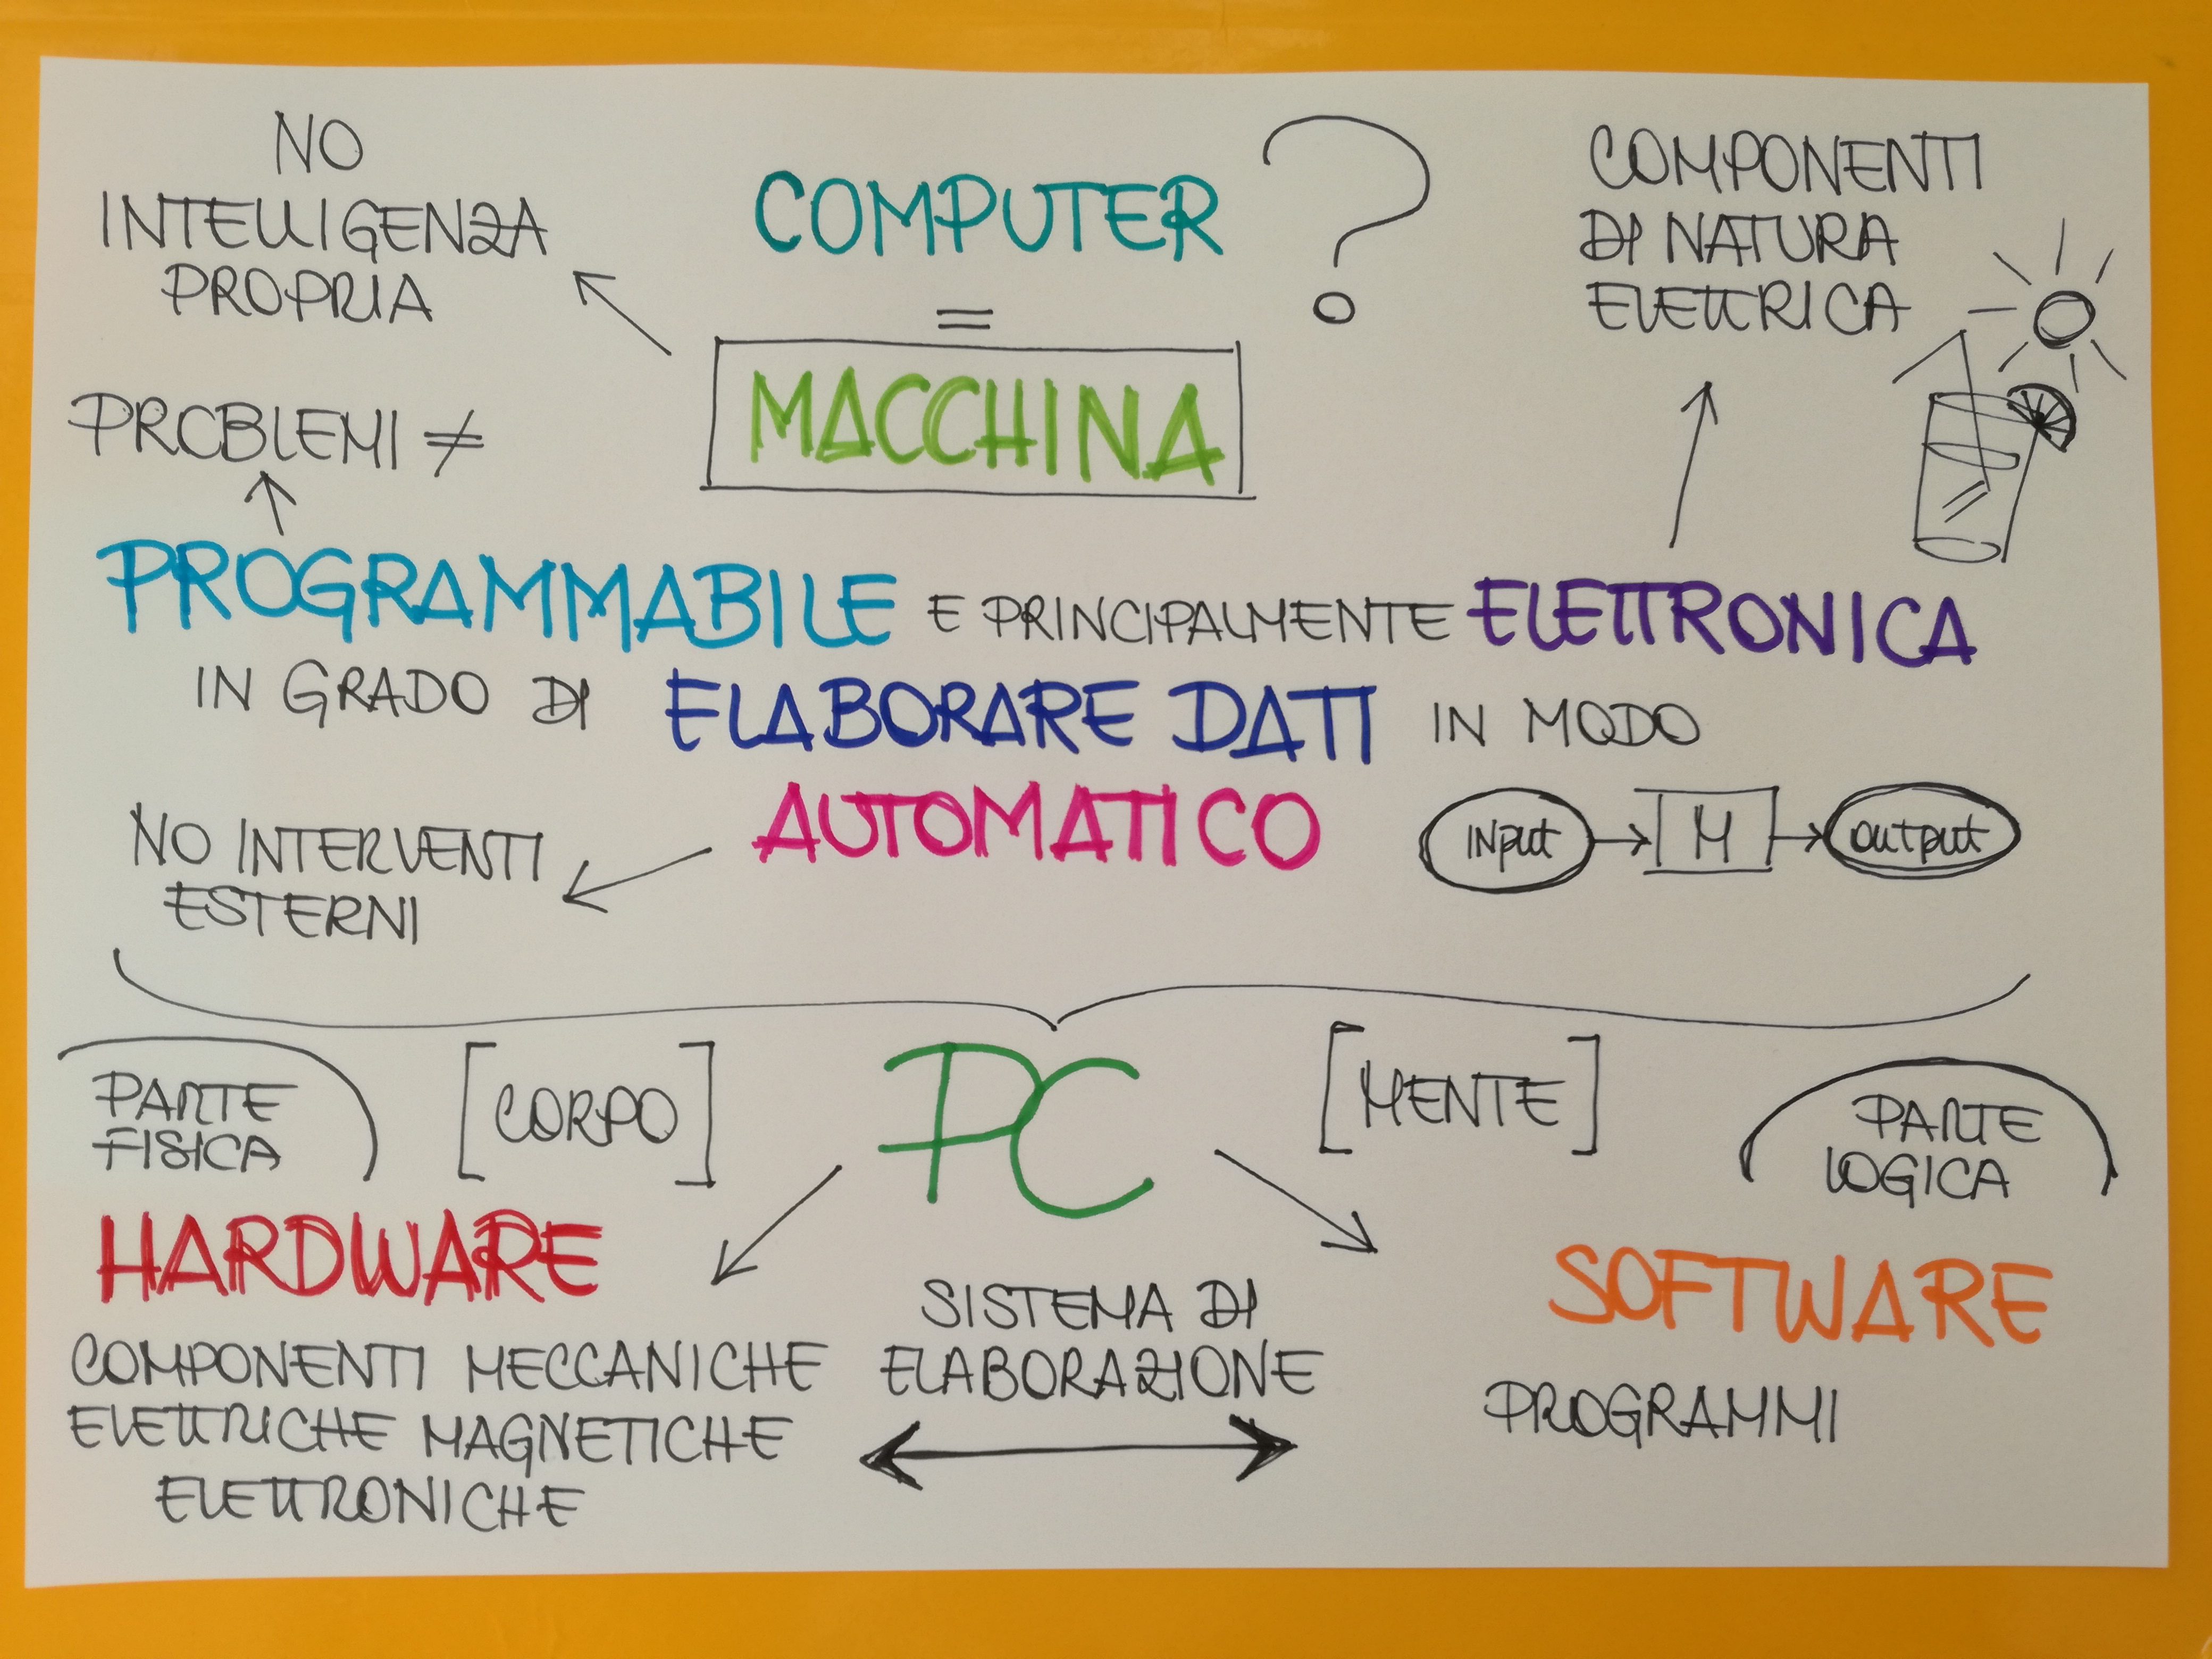 NO
INTELLIGENZA
PROPRIA
COMPUTER ?
=
MACCHINA
COMPONENTI
DI NATURA
ELETTRICA
PROBLEMI ≠
PROGRAMMABILE E PRINCIPALMENTE ELETTRONICA
IN GRADO DI ELABORARE DATI IN MODO
AUTOMATICO
NO INTERVENTI
ESTERNI
INPUT → M → OUTPUT
PARTE
FISICA
[CORPO]
PC
[MENTE]
PARTE
LOGICA
HARDWARE
COMPONENTI MECCANICHE
ELETTRICHE MAGNETICHE
ELETTRONICHE
SISTEMA DI
ELABORAZIONE
SOFTWARE
PROGRAMMI